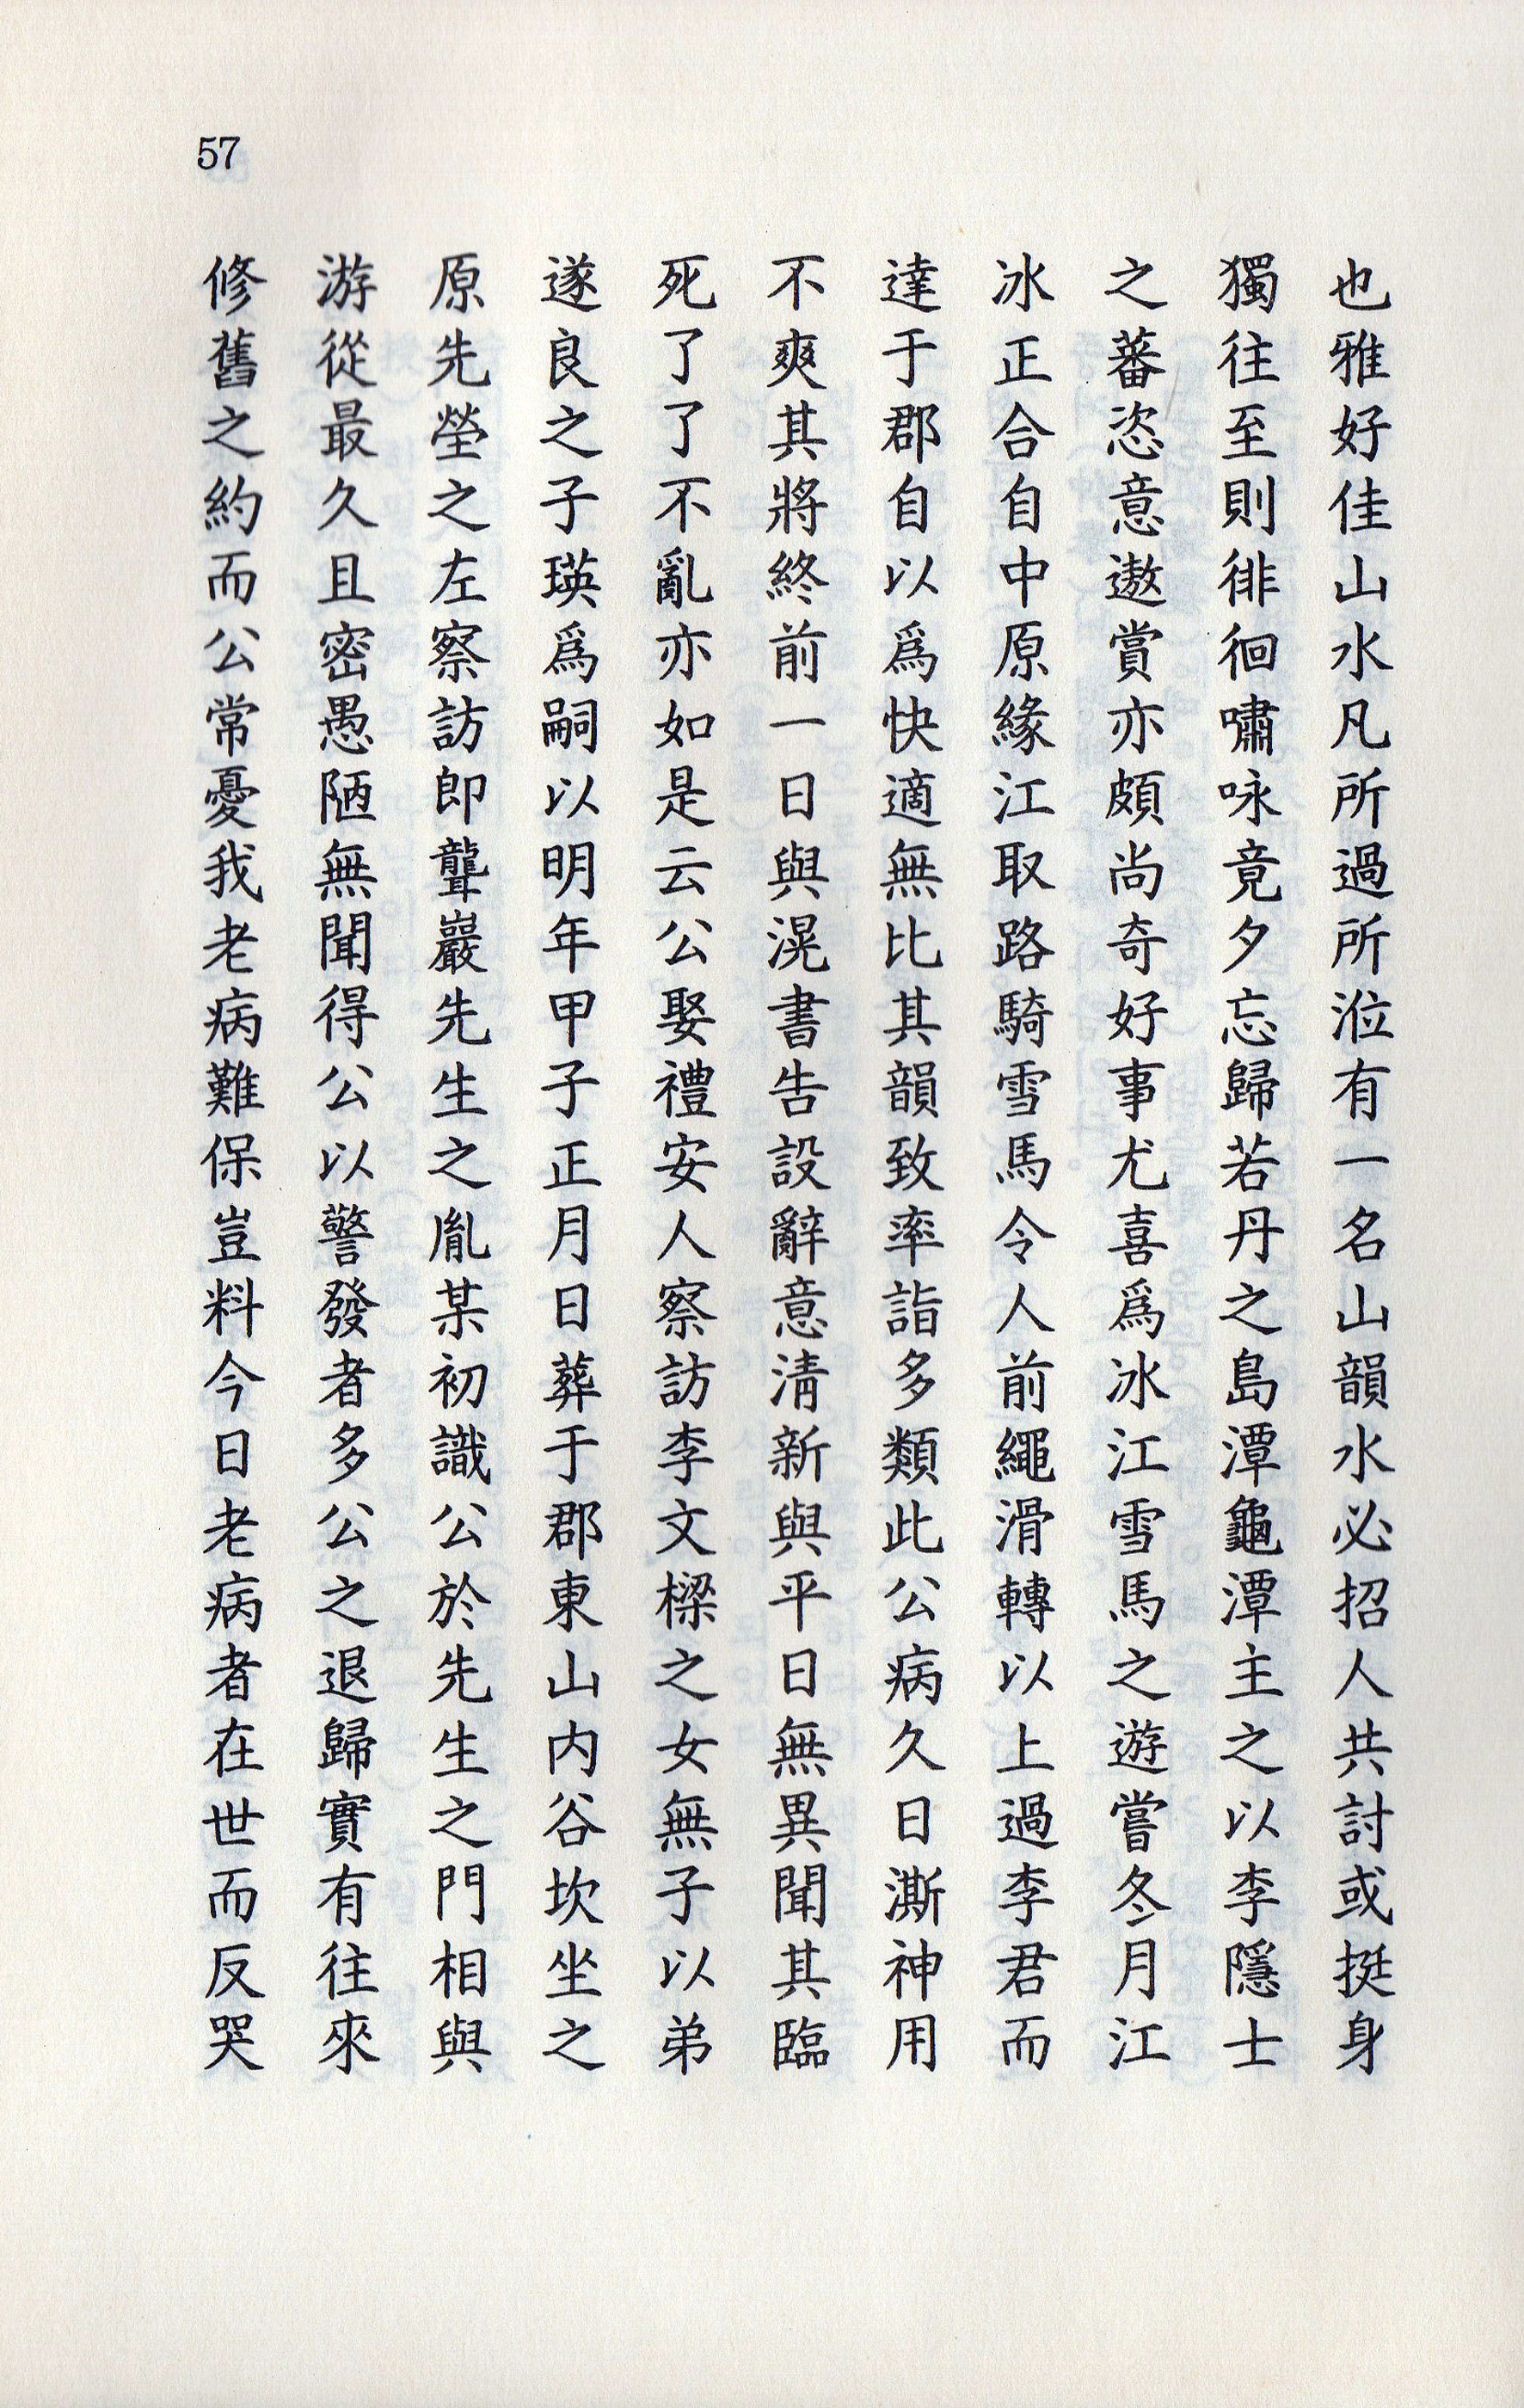 57
也雅好佳山水凡所過所涖有一名山韻水必招人共討或挺身
獨往至則徘徊嘯咏竟夕忘歸若丹之島潭龜潭主之以李隱士
之蕃恣意遨賞亦頗尚奇好事尤喜爲冰江雪馬之遊嘗冬月江
冰正合自中原緣江取路騎雪馬令人前繩滑轉以上過李君而
達于郡自以爲快適無比其韻致率詣多類此公病久日澌神用
不爽其將終前一日與滉書告設辭意淸新與平日無異聞其臨
死了了不亂亦如是云公娶禮安人察訪李文樑之女無子以弟
遂良之子瑛爲嗣以明年甲子正月日葬于郡東山内谷坎坐之
原先塋之左察訪即聾巖先生之胤某初識公於先生之門相與
游從最久且密愚陋無聞得公以警發者多公之退歸實有往來
修舊之約而公常憂我老病難保豈料今日老病者在世而反哭